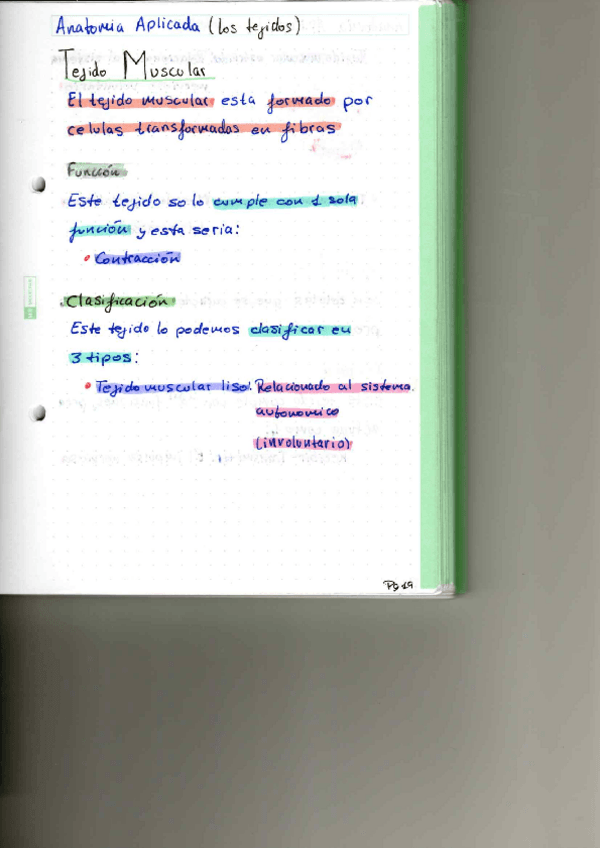 Anatomia Aplicada (los tejidos)
Tejido Muscular
El tejido muscular esta formado por
celulas transformadas en fibras
Función
Este tejido solo cumple con 1 sola
función y esta seria:
• Contracción
Clasificación
Este tejido lo podemos clasificar en
3 tipos:
• Tejido muscular liso: Relacionado al sistema
autonomico
(involuntario)
Pg 19